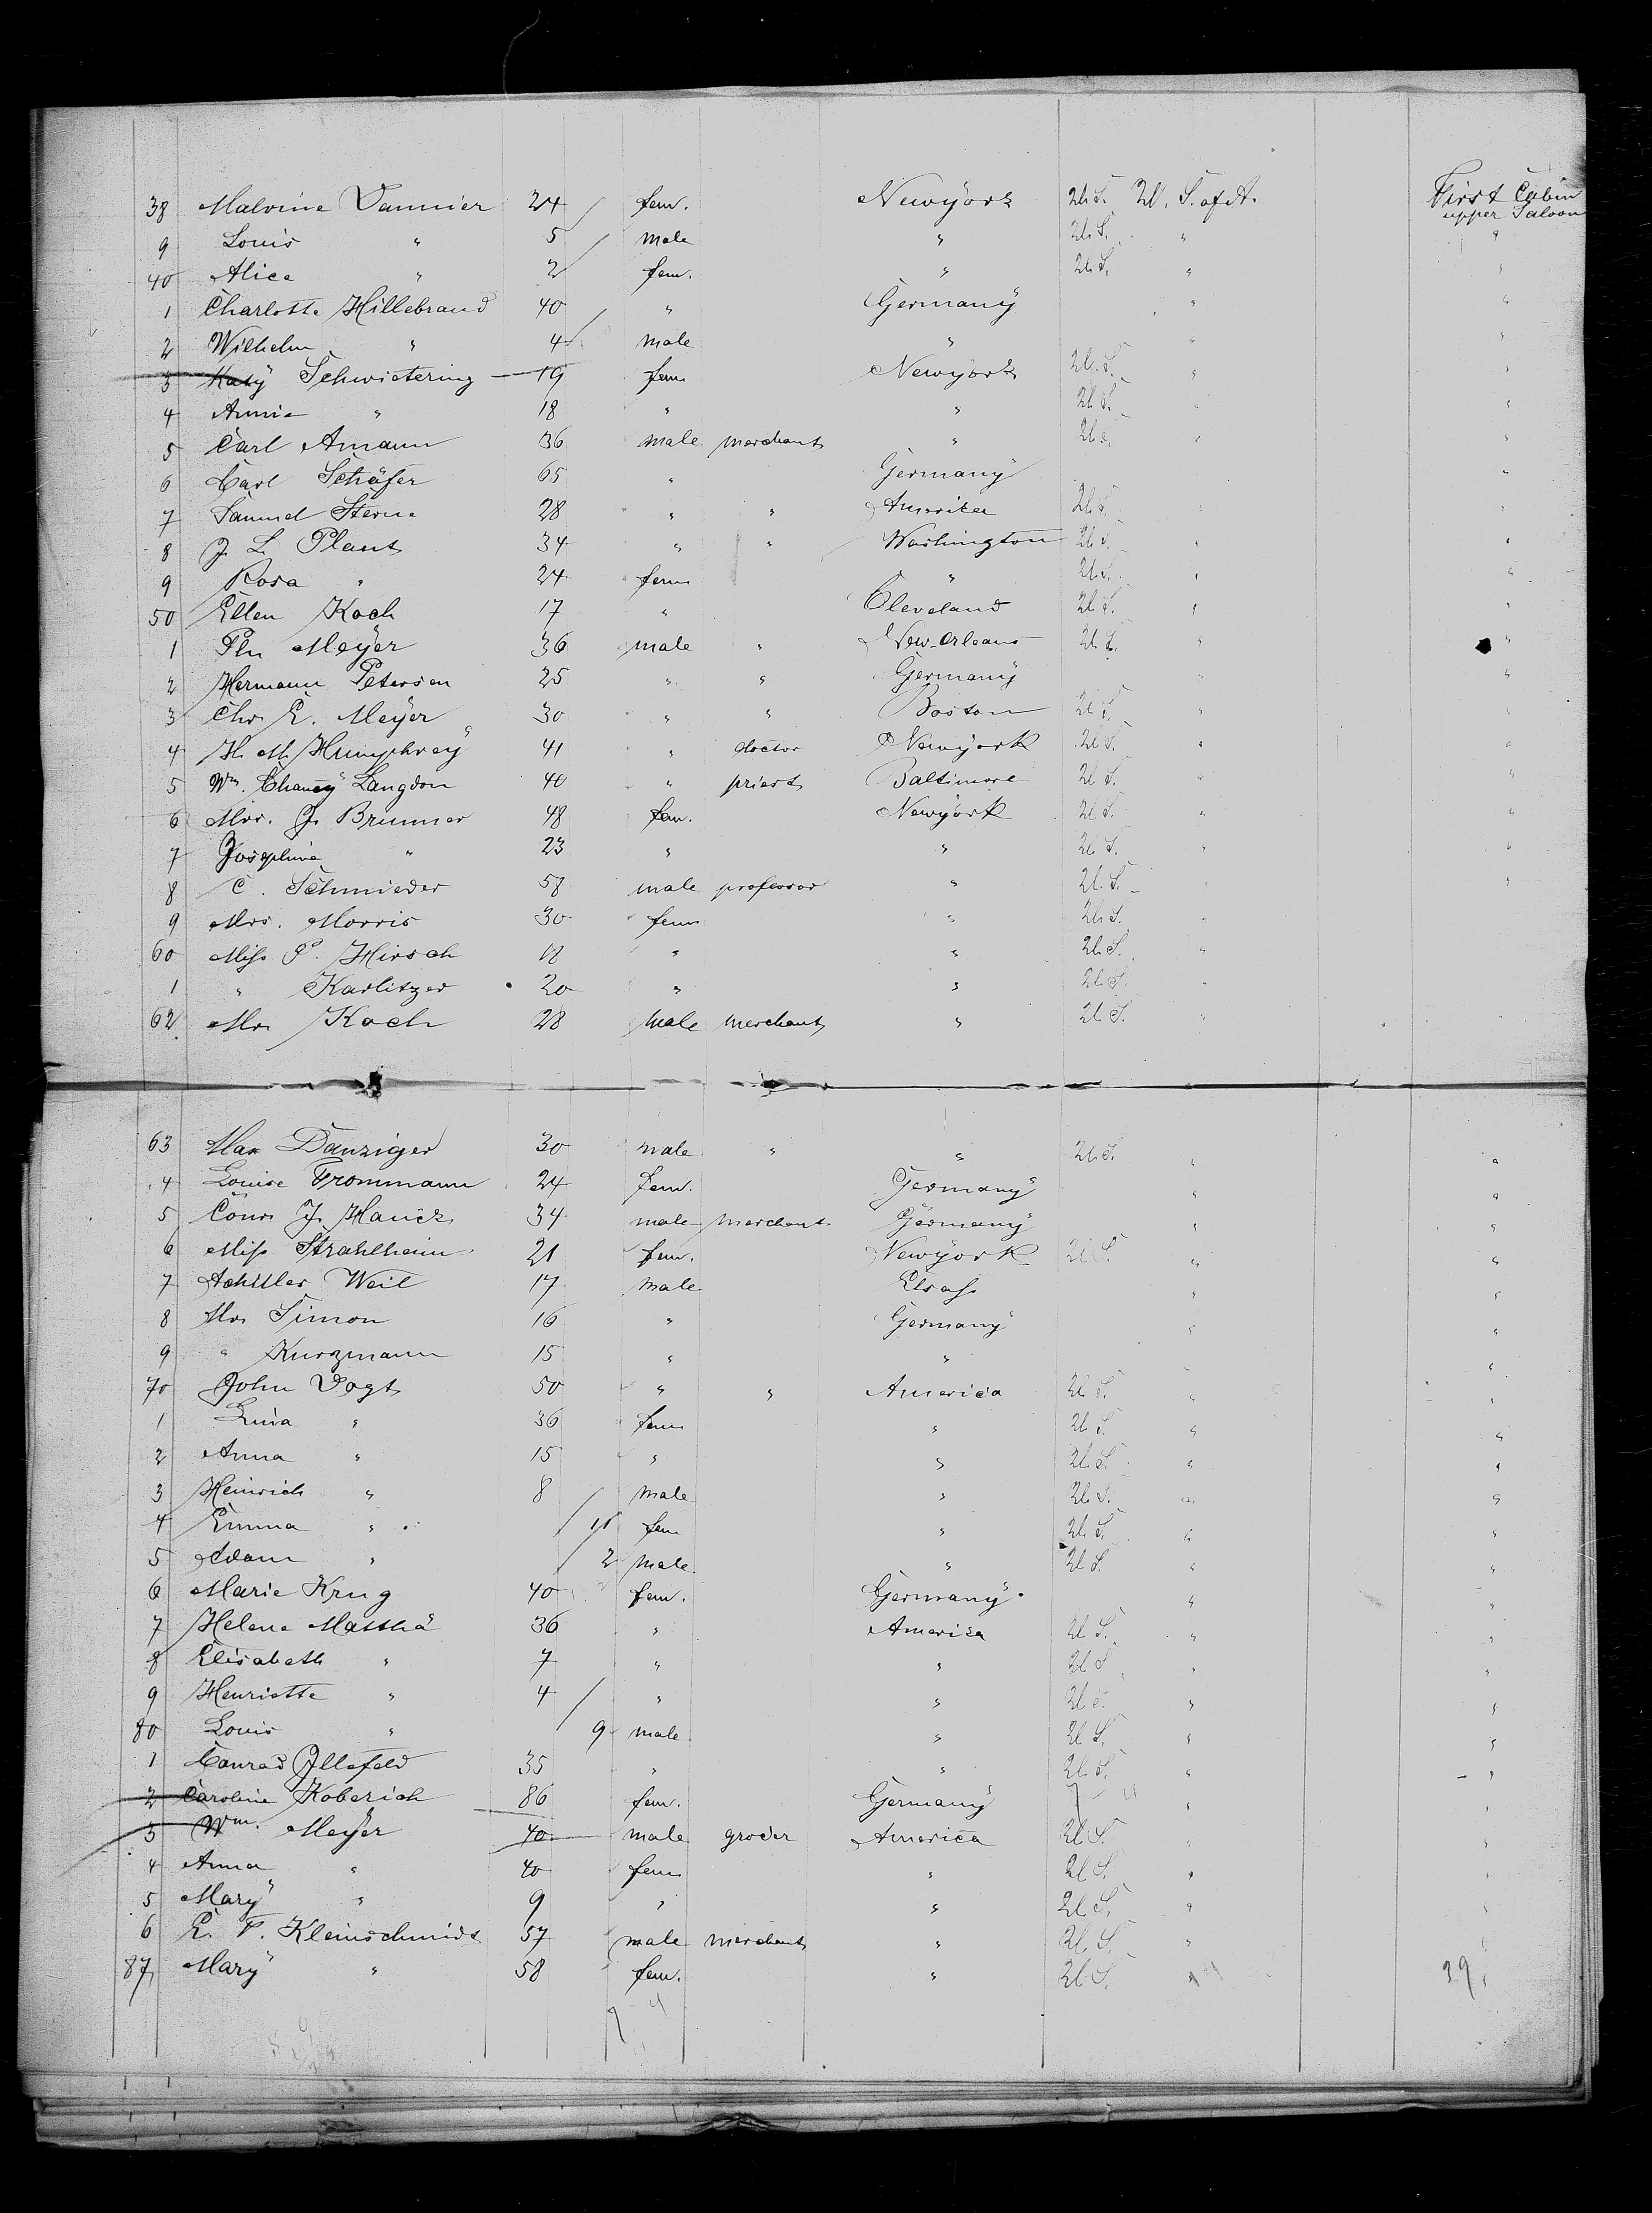 38 Malvine Dannier 24 fem. Newÿork U.S. U. S. of A. First Cabin upper Saloon
9 Louis " 5 male " U.S. " "
40 Alice " 2 fem. " U.S. " "
1 Charlotte Hillebrand 40 " Germanÿ " "
2 Wilhelm " 4 male " " "
3 Katÿ Schwietering 19 fem Newÿork U.S. " "
4 Annie " 18 " " U.S. " "
5 Carl Amann 36 male merchant " U.S. " "
6 Carl Schäfer 65 " Germanÿ "
7 Samuel Sterne 28 " " America U.S. " "
8 J. L. Plant 34 " " Washington U.S. " "
9 Rosa " 24 fem " U.S. " "
50 Ellen Koch 17 " Cleveland U.S. " "
1 Meÿer 36 male " New-Orleans U.S. " "
2 Hermann Peterson 25 " " Germanÿ " "
3 Chr. E. Meÿer 30 " " Boston U.S. " "
4 H. M. Humphreÿ 41 " doctor Newÿork U.S. " "
5 Wm. Chaucÿ Langdon 40 " priest Baltimore U.S. " "
6 Mrs. J. Brunner 48 fem. Newÿork U.S. " "
7 Josephine " 23 " " U.S. " "
8 C. Schmieder 58 male professor " U.S. " "
9 Mrs. Morris 30 fem " U.S. "
60 Miss P. Hirsch 18 " " U.S. "
1 " Karlitzer 20 " " U.S. "
62 Mr. Koch 28 male merchant " U.S. "
63 Max Danziger 30 male " " U.S. " "
4 Louise Frommann 24 fem. Germanÿ " "
5 Conr. J. Hauck 34 male merchant Germanÿ " "
6 Miss Strahlheim 21 fem. Newÿork U.S. " "
7 Achilles Weil 17 male Elsass " "
8 Mr. Simon 16 " Germanÿ " "
9 " Kurzmann 15 " " " "
70 John Vogt 50 " " America U.S. " "
1 Luisa " 36 fem " U.S. " "
2 Anna " 15 " " U.S. " "
3 Heinrich " 8 male " U.S. " "
4 Emma " 11 fem " U.S. " "
5 Adam " 2 male " U.S. " "
6 Marie Krug 40 fem. Germanÿ " "
7 Helene Matthä 36 " America U.S. " "
8 Elisabeth " 7 " " U.S. " "
9 Henriette " 4 " " U.S. " "
80 Louis " 9 male " U.S. " "
1 Conrad Illefeld 35 " " U.S. " "
2 Caroline Koberich 86 fem. Germanÿ " "
3 Wm. Meÿer 40 male grocer America U.S. " "
4 Anna " 40 fem " U.S. " "
5 Marÿ " 9 " " U.S. " "
6 E. F. Kleinschmidt 57 male merchant " U.S. " "
87 Marÿ " 58 fem. " U.S. " 39 "